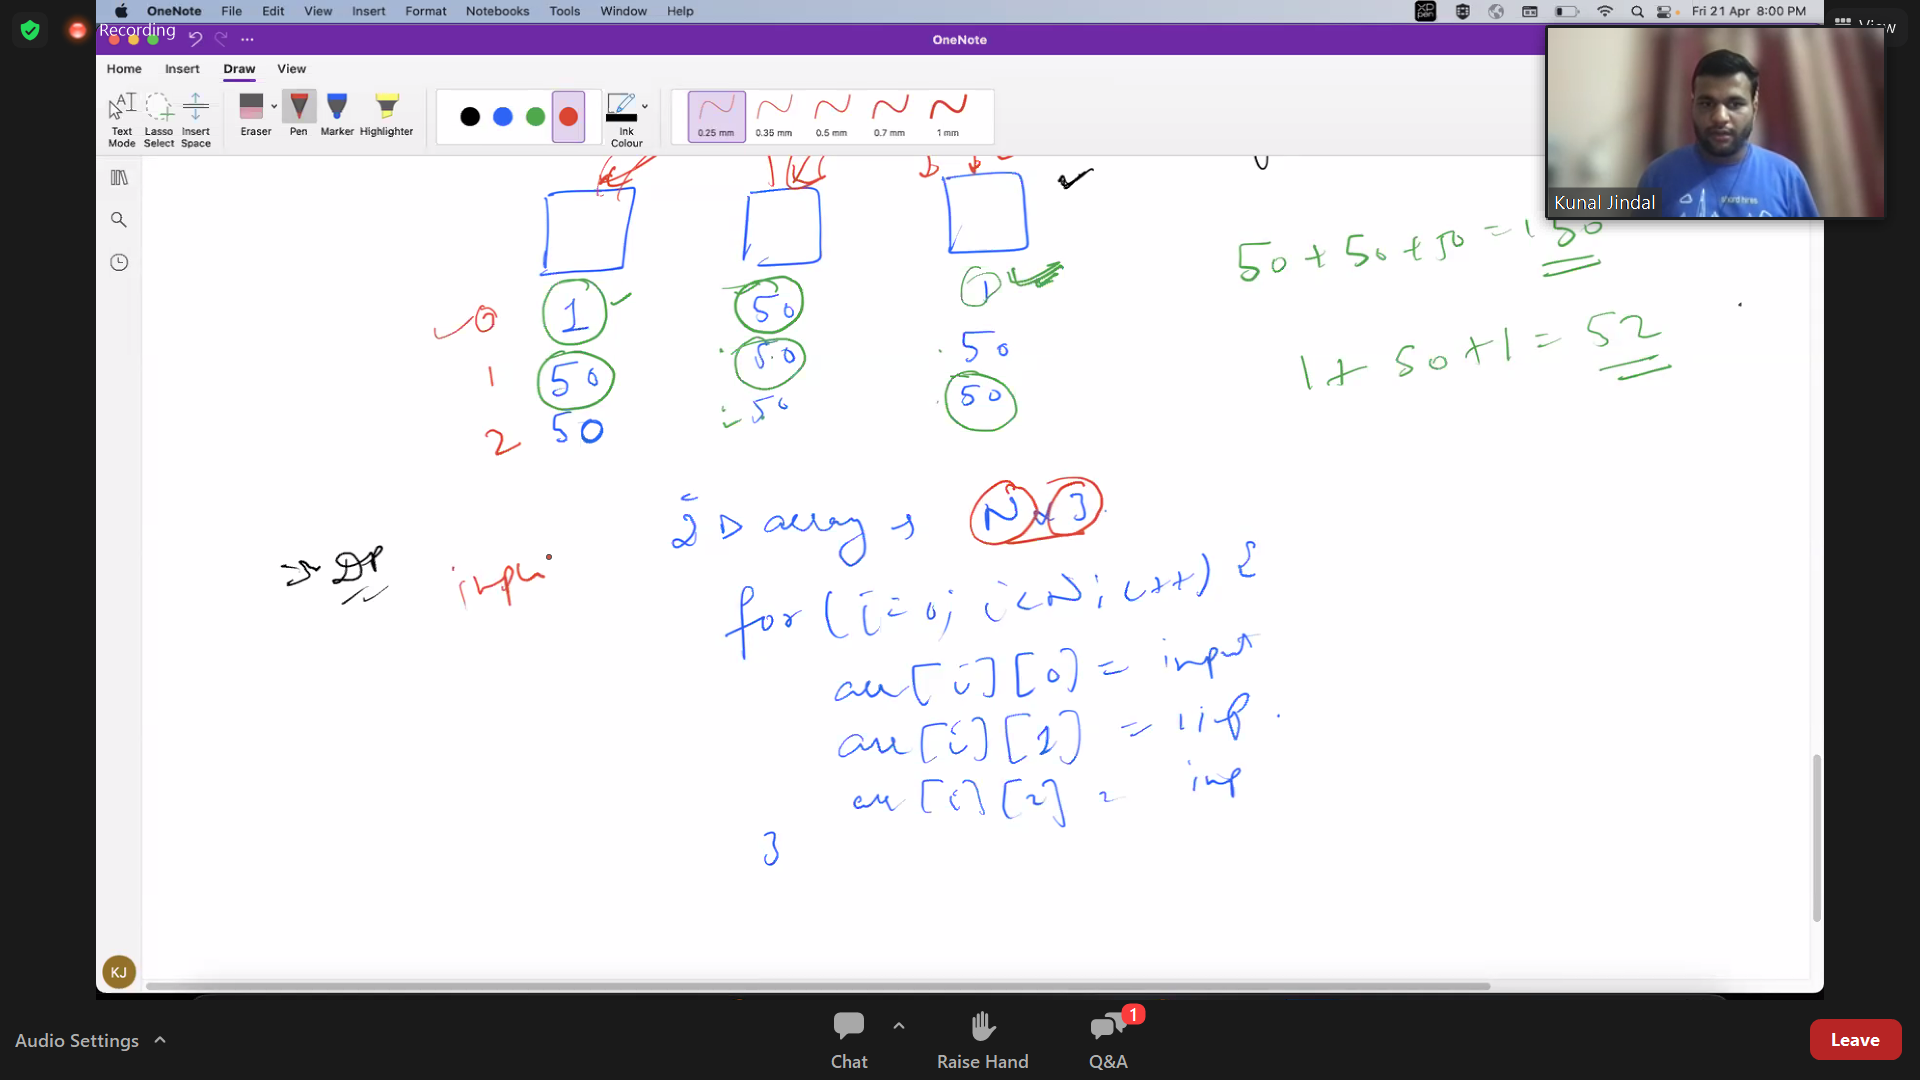 OneNote File Edit View Insert Format Notebooks Tools Window Help Fri 21 Apr 8:00 PM
Recording
OneNote
View
Home Insert Draw View
Text Mode Lasso Select Insert Space Eraser Pen Marker Highlighter Ink Colour 0.25 mm 0.35 mm 0.5 mm 0.7 mm 1 mm
Kunal Jindal
50 + 50 + 50 = 150
0 1 50 1
1 + 50 + 1 = 52
1 50 50 50
2 50 50 50
2D array N x 3
DP inpu
for (i=0; i<N; i++) {
arr[i][0] = input
arr[i][1] = inp
arr[i][2] = inp
}
KJ
Audio Settings Chat Raise Hand Q&A 1 Leave